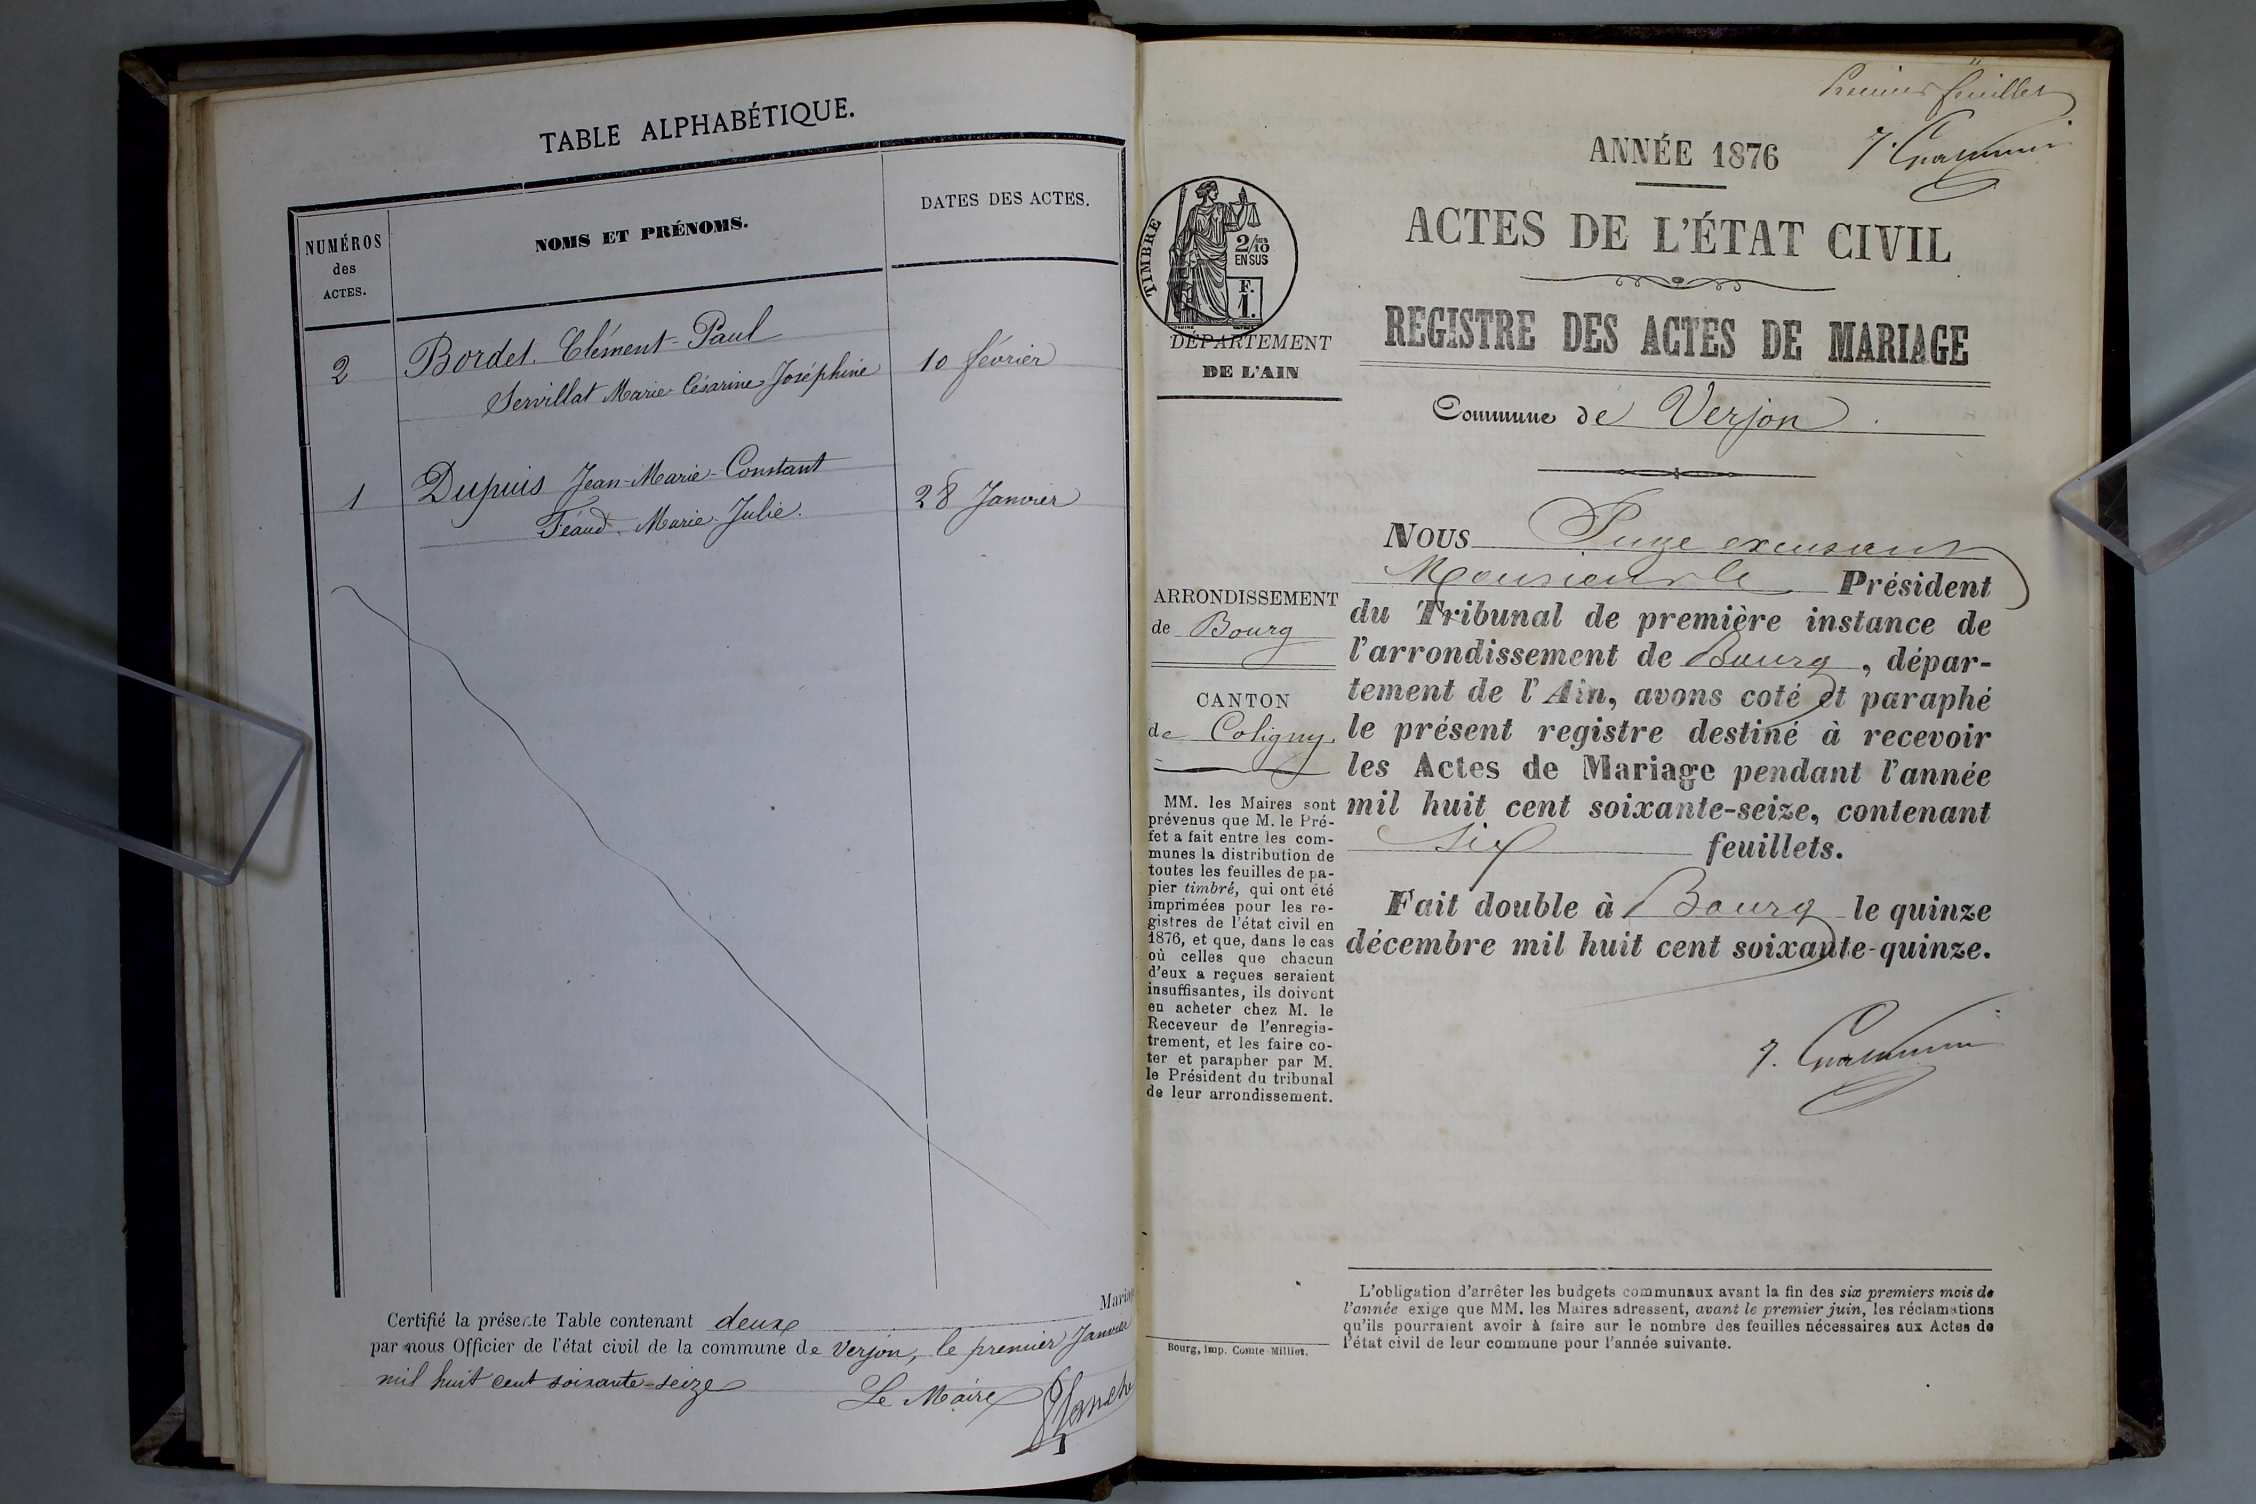 TABLE ALPHABÉTIQUE.
NUMÉROS
des
ACTES.
NOMS ET PRÉNOMS.
DATES DES ACTES.
2 Bordet Clément-Paul 10 février
Servillat Marie-Césarine Joséphine
1 Dupuis Jean-Marie-Constant 28 Janvier
Féaud Marie Julie.
Certifié la présente Table contenant deux Mariag
par nous Officier de l'état civil de la commune de Verjon, le premier Janvier
mil huit cent soixante-seize
Le Maire
Premier feuillet
ANNÉE 1876
ACTES DE L'ÉTAT CIVIL
REGISTRE DES ACTES DE MARIAGE
TIMBRE
2/10
EN SUS
F.
1.
DÉPARTEMENT
DE L'AIN
Commune de Verjon
ARRONDISSEMENT
de Bourg
CANTON
de Coligny
MM. les Maires sont
prévenus que M. le Pré-
fet a fait entre les com-
munes la distribution de
toutes les feuilles de pa-
pier timbré, qui ont été
imprimées pour les re-
gistres de l'état civil en
1876, et que, dans le cas
où celles que chacun
d'eux a reçues seraient
insuffisantes, ils doivent
en acheter chez M. le
Receveur de l'enregis-
trement, et les faire co-
ter et parapher par M.
le Président du tribunal
de leur arrondissement.
Bourg, imp. Comte-Milliet.
NOUS Juge excusant
Monsieur le Président
du Tribunal de première instance de
l'arrondissement de Bourg, dépar-
tement de l'Ain, avons coté et paraphé
le présent registre destiné à recevoir
les Actes de Mariage pendant l'année
mil huit cent soixante-seize, contenant
six feuillets.
Fait double à Bourg le quinze
décembre mil huit cent soixante-quinze.
L'obligation d'arrêter les budgets communaux avant la fin des six premiers mois de
l'année exige que MM. les Maires adressent, avant le premier juin, les réclamations
qu'ils pourraient avoir à faire sur le nombre des feuilles nécessaires aux Actes de
l'état civil de leur commune pour l'année suivante.